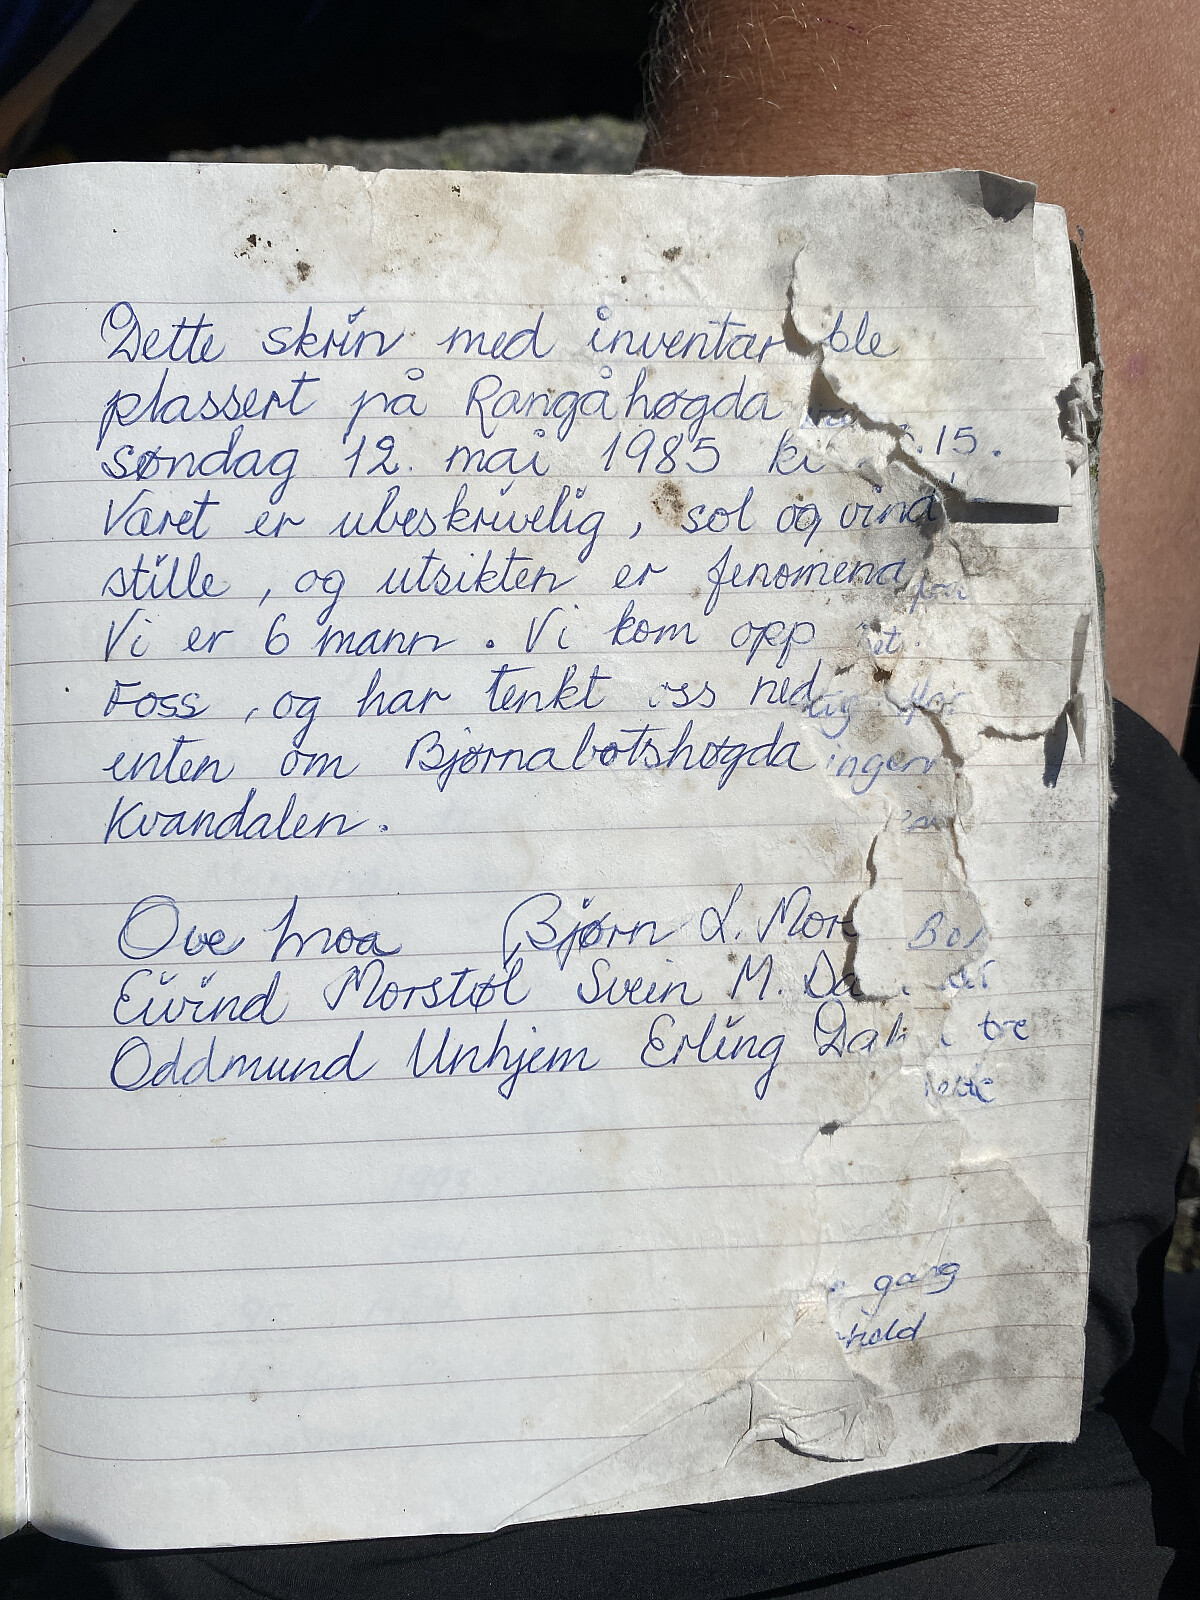 Dette skrin med inventar ble
plassert på Rangåhøgda
søndag 12. mai 1985 .15.
Været er ubeskrivelig, sol og vind
stille, og utsikten er fenomena
Vi er 6 mann. Vi kom opp
Foss, og har tenkt oss ned
enten om Bjørnabotshøgda
Kvandalen.
Ove Moa Bjørn L. Mor
Eivind Morstøl Svein M. Da
Oddmund Unhjem Erling Dah
gang
hold